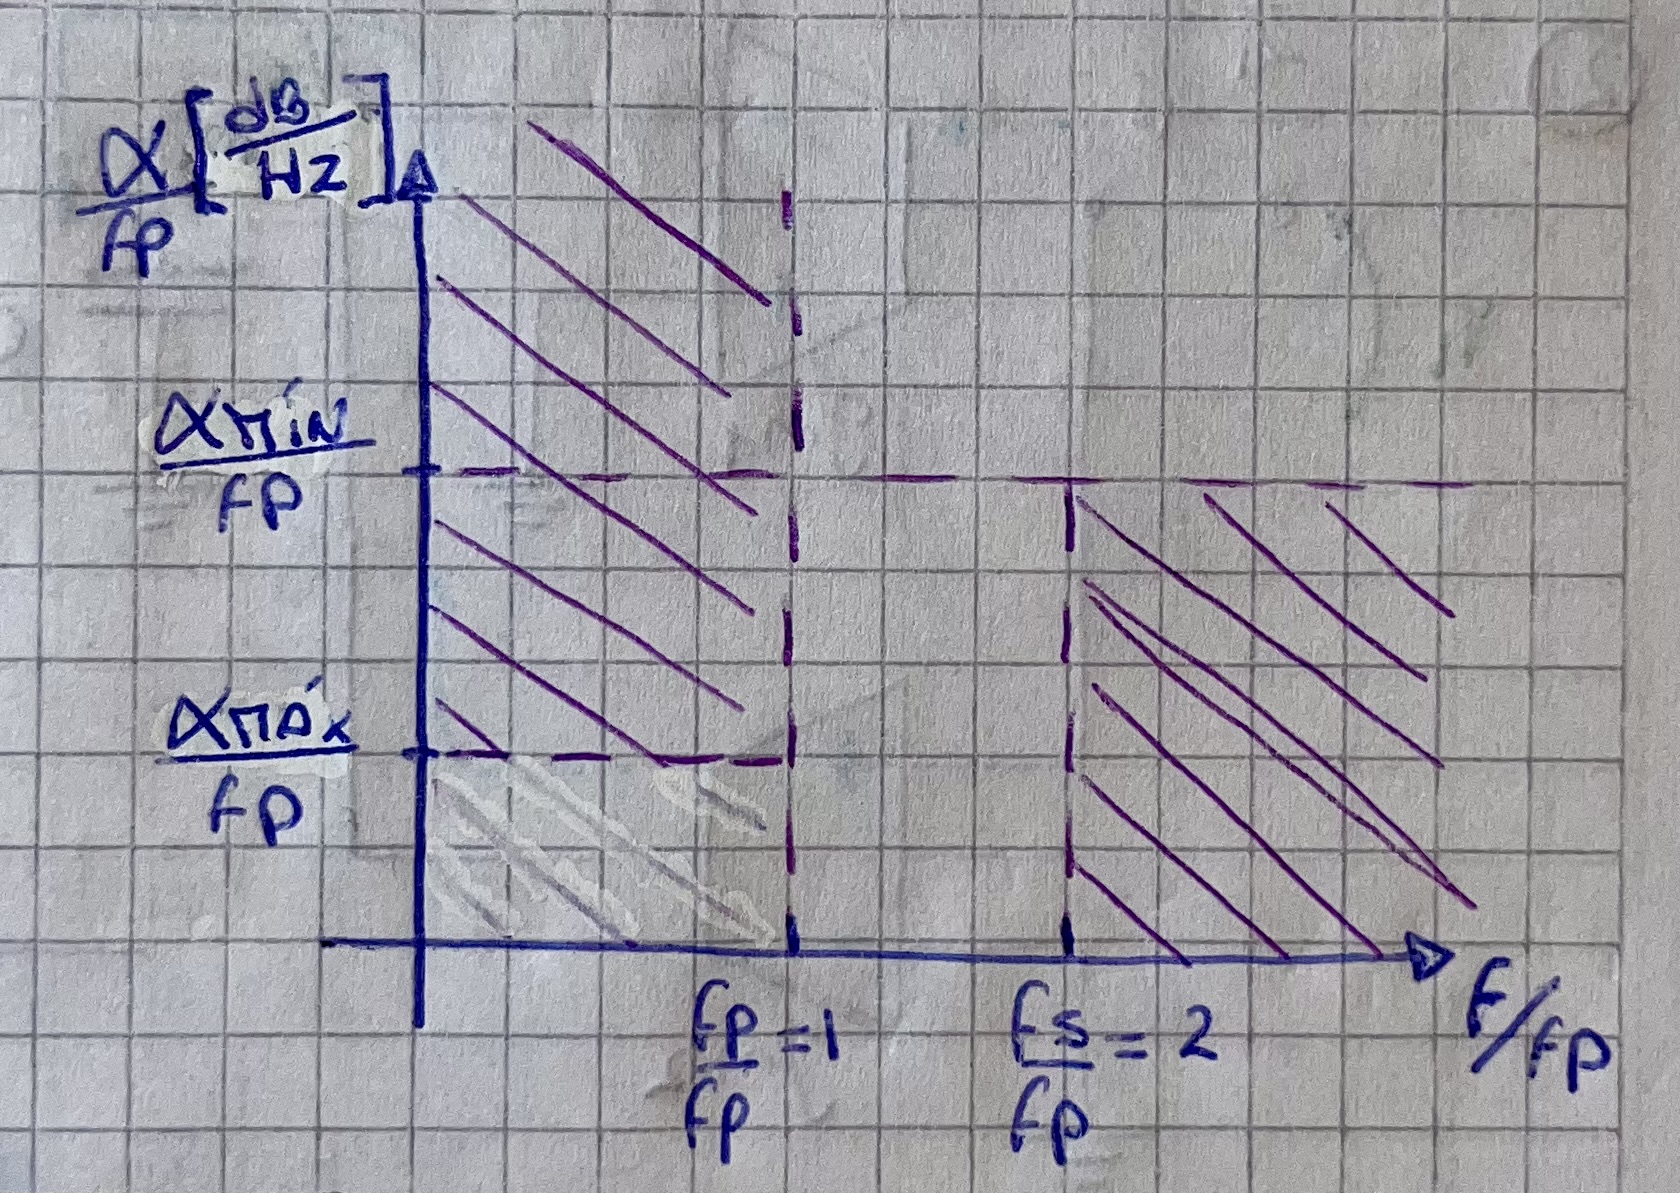 α/fp [dB/Hz]
αmín/fp
αmáx/fp
fp/fp = 1
fs/fp = 2
f/fp